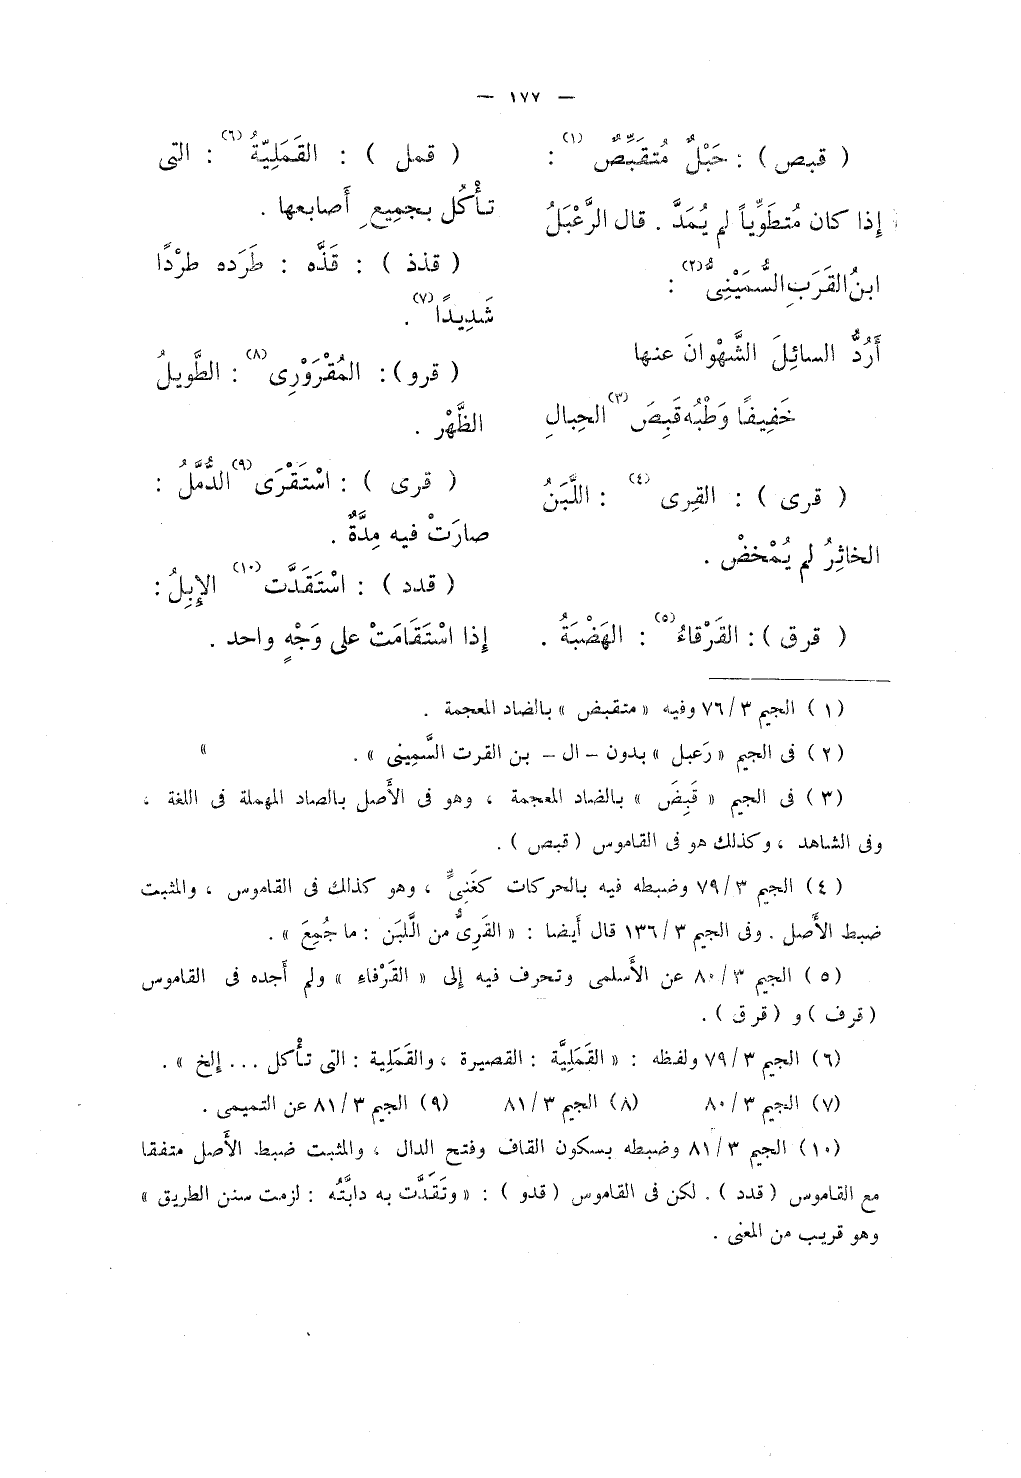 — ١٧٧ —
( قبص ) : حَبْلٌ مُتقَبِّصٌ (١) :
إِذا كان مُتطَوِّياً لم يُمَدَّ . قال الرَّعْبَلُ
ابنُ القَرَبِ السُّمَيْنِىُّ (٢) :
أَرُدُّ السائِلَ الشَّهْوانَ عنها
خَفِيفًا وَطْبُه قَبِصَ (٣) الحِبالِ
( قرى ) : القِرى (٤) : اللَّبَنُ
الخاثِرُ لم يُمْخضْ .
( قرق ) : القَرْقاءُ (٥) : الهَضْبَةُ .
( قمل ) : القَمَلِيّةُ (٦) : التى
تأْكُل بجَمِيعِ أَصابعها .
( قذذ ) : قَذَّه : طَرَده طرْدًا
شَدِيدًا (٧) .
( قرو ) : المُقْرَوْرِى (٨) : الطَّويلُ
الظَّهْر .
( قرى ) : اسْتَقْرَى (٩) الدُّمَّلُ :
صارَتْ فيه مِدَّةٌ .
( قدد ) : اسْتَقَدَّت (١٠) الإِبِلُ :
إِذا اسْتَقَامَتْ على وَجْهٍ واحد .
(١) الجيم ٣/ ٧٦ وفيه « متقبض » بالضاد المعجمة .
(٢) فى الجيم « رَعبل » بدون – ال – بن القرت السَّمِينى » .
(٣) فى الجيم « قَبِضَ » بالضاد المعجمة ، وهو فى الأَصل بالصاد المهملة فى اللغة ،
وفى الشاهد ، وكذلك هو فى القاموس ( قبص ) .
(٤) الجيم ٣/ ٧٩ وضبطه فيه بالحركات كغَنِىٍّ ، وهو كذلك فى القاموس ، والمثبت
ضبط الأَصل . وفى الجيم ٣/ ١٣٦ قال أَيضا : « القَرِىُّ من الَّلبَن : ما جُمِعَ » .
(٥) الجيم ٣/ ٨٠ عن الأَسلمى وتحرف فيه إلى « القَرْفاءِ » ولم أَجده فى القاموس
( قرف ) و ( قرق ) .
(٦) الجيم ٣/ ٧٩ ولفظه : « القَمَلِيَّة : القصيرة ، والقَمَلِية : التى تأْكل ... إلخ » .
(٧) الجيم ٣/ ٨٠ (٨) الجيم ٣/ ٨١ (٩) الجيم ٣/ ٨١ عن التميمى .
(١٠) الجيم ٣/ ٨١ وضبطه بسكون القاف وفتح الدال ، والمثبت ضبط الأَصل متفقا
مع القاموس ( قدد ) . لكن فى القاموس ( قدو ) : « وتَقَدَّت به دابَّتُه : لزمت سنن الطريق »
وهو قريب من المعنى .